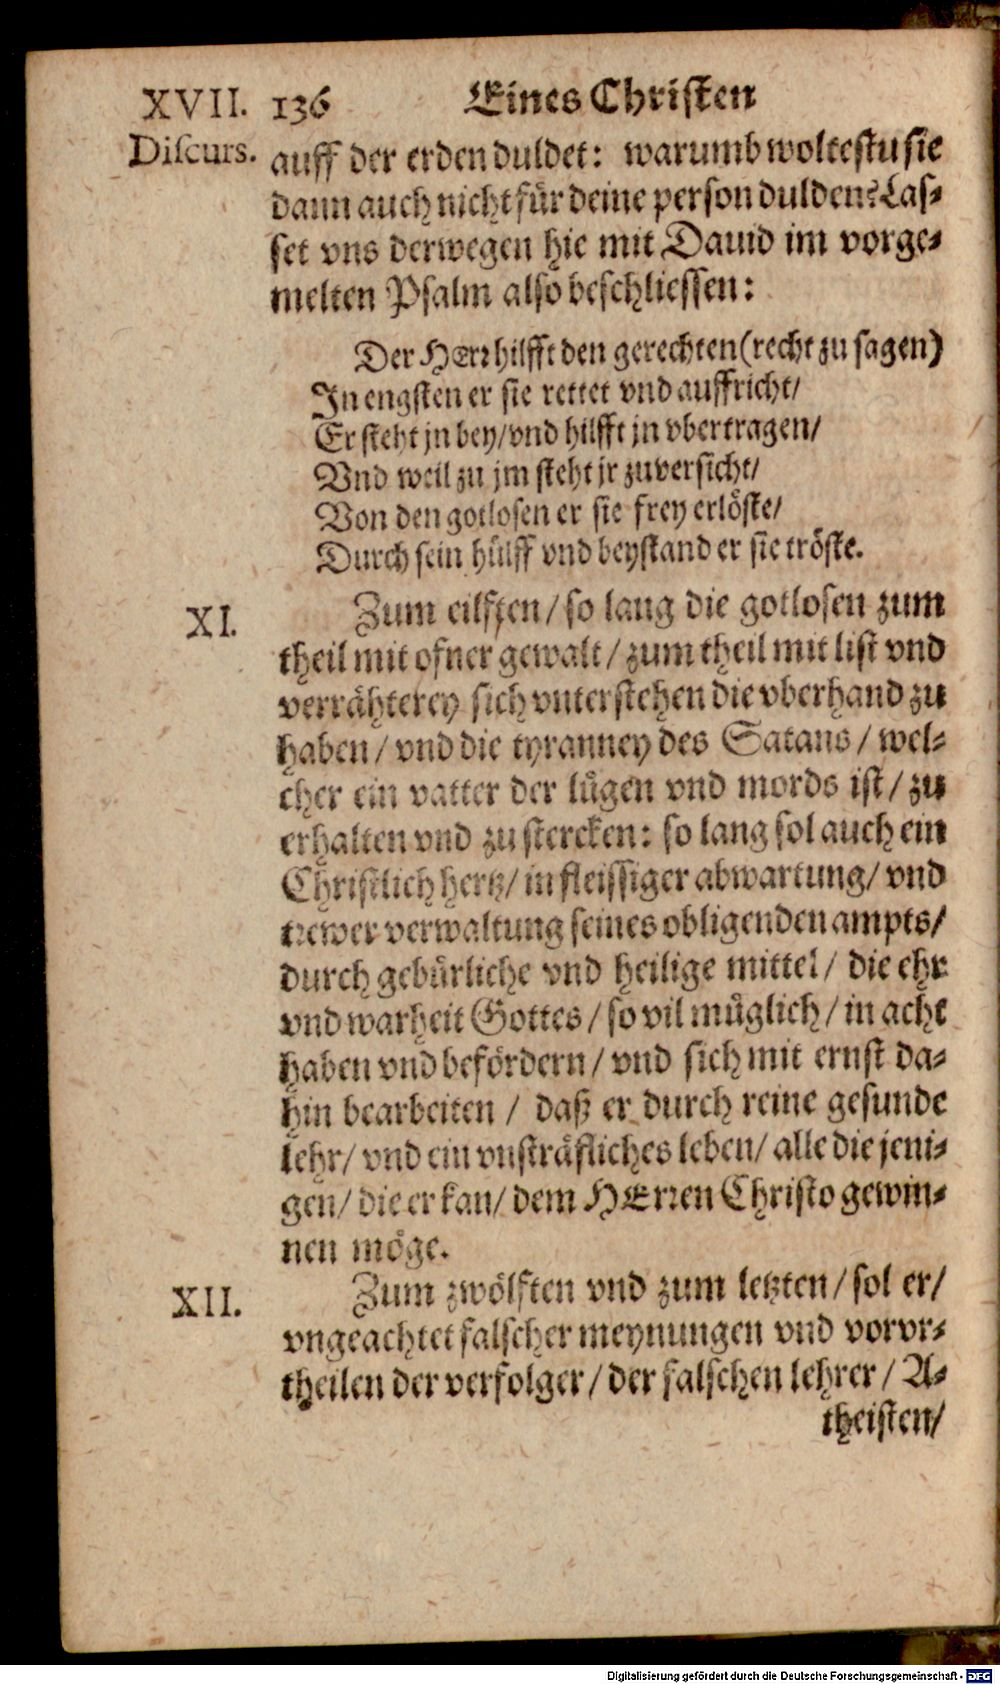 XVII. 136 Eines Christen
Discurs. auff der erden duldet: warumb woltestu sie
dann auch nicht für deine person dulden? Las-
set vns derwegen hie mit Dauid im vorge-
melten Psalm also beschliessen:
Der HErr hilfft den gerechten (recht zu sagen)
In engsten er sie rettet vnd auffricht/
Er steht jn bey/ vnd hilfft jn vbertragen/
Vnd weil zu jm steht jr zuversicht/
Von den gotlosen er sie frey erlöste/
Durch sein hülff vnd beystand er sie tröste.
XI. Zum eilften/ so lang die gotlosen zum
theil mit ofner gewalt/ zum theil mit list vnd
verrähterey sich vnterstehen die vberhand zu
haben/ vnd die tyranney des Satans/ wel-
cher ein vatter der lügen vnd mords ist/ zu
erhalten vnd zu stercken: so lang sol auch ein
Christlich hertz/ in fleissiger abwartung/ vnd
trewer verwaltung seines obligenden ampts/
durch gebürliche vnd heilige mittel/ die ehr
vnd warheit Gottes/ so vil müglich/ in acht
haben vnd befördern/ vnd sich mit ernst da-
hin bearbeiten/ daß er durch reine gesunde
lehr/ vnd ein vnsträfliches leben/ alle die jeni-
gen/ die er kan/ dem HErren Christo gewin-
nen möge.
XII. Zum zwölften vnd zum letzten/ sol er/
vngeachtet falscher meynungen vnd vorvr-
theilen der verfolger/ der falschen lehrer/ A-
theisten/
Digitalisierung gefördert durch die Deutsche Forschungsgemeinschaft - DFG